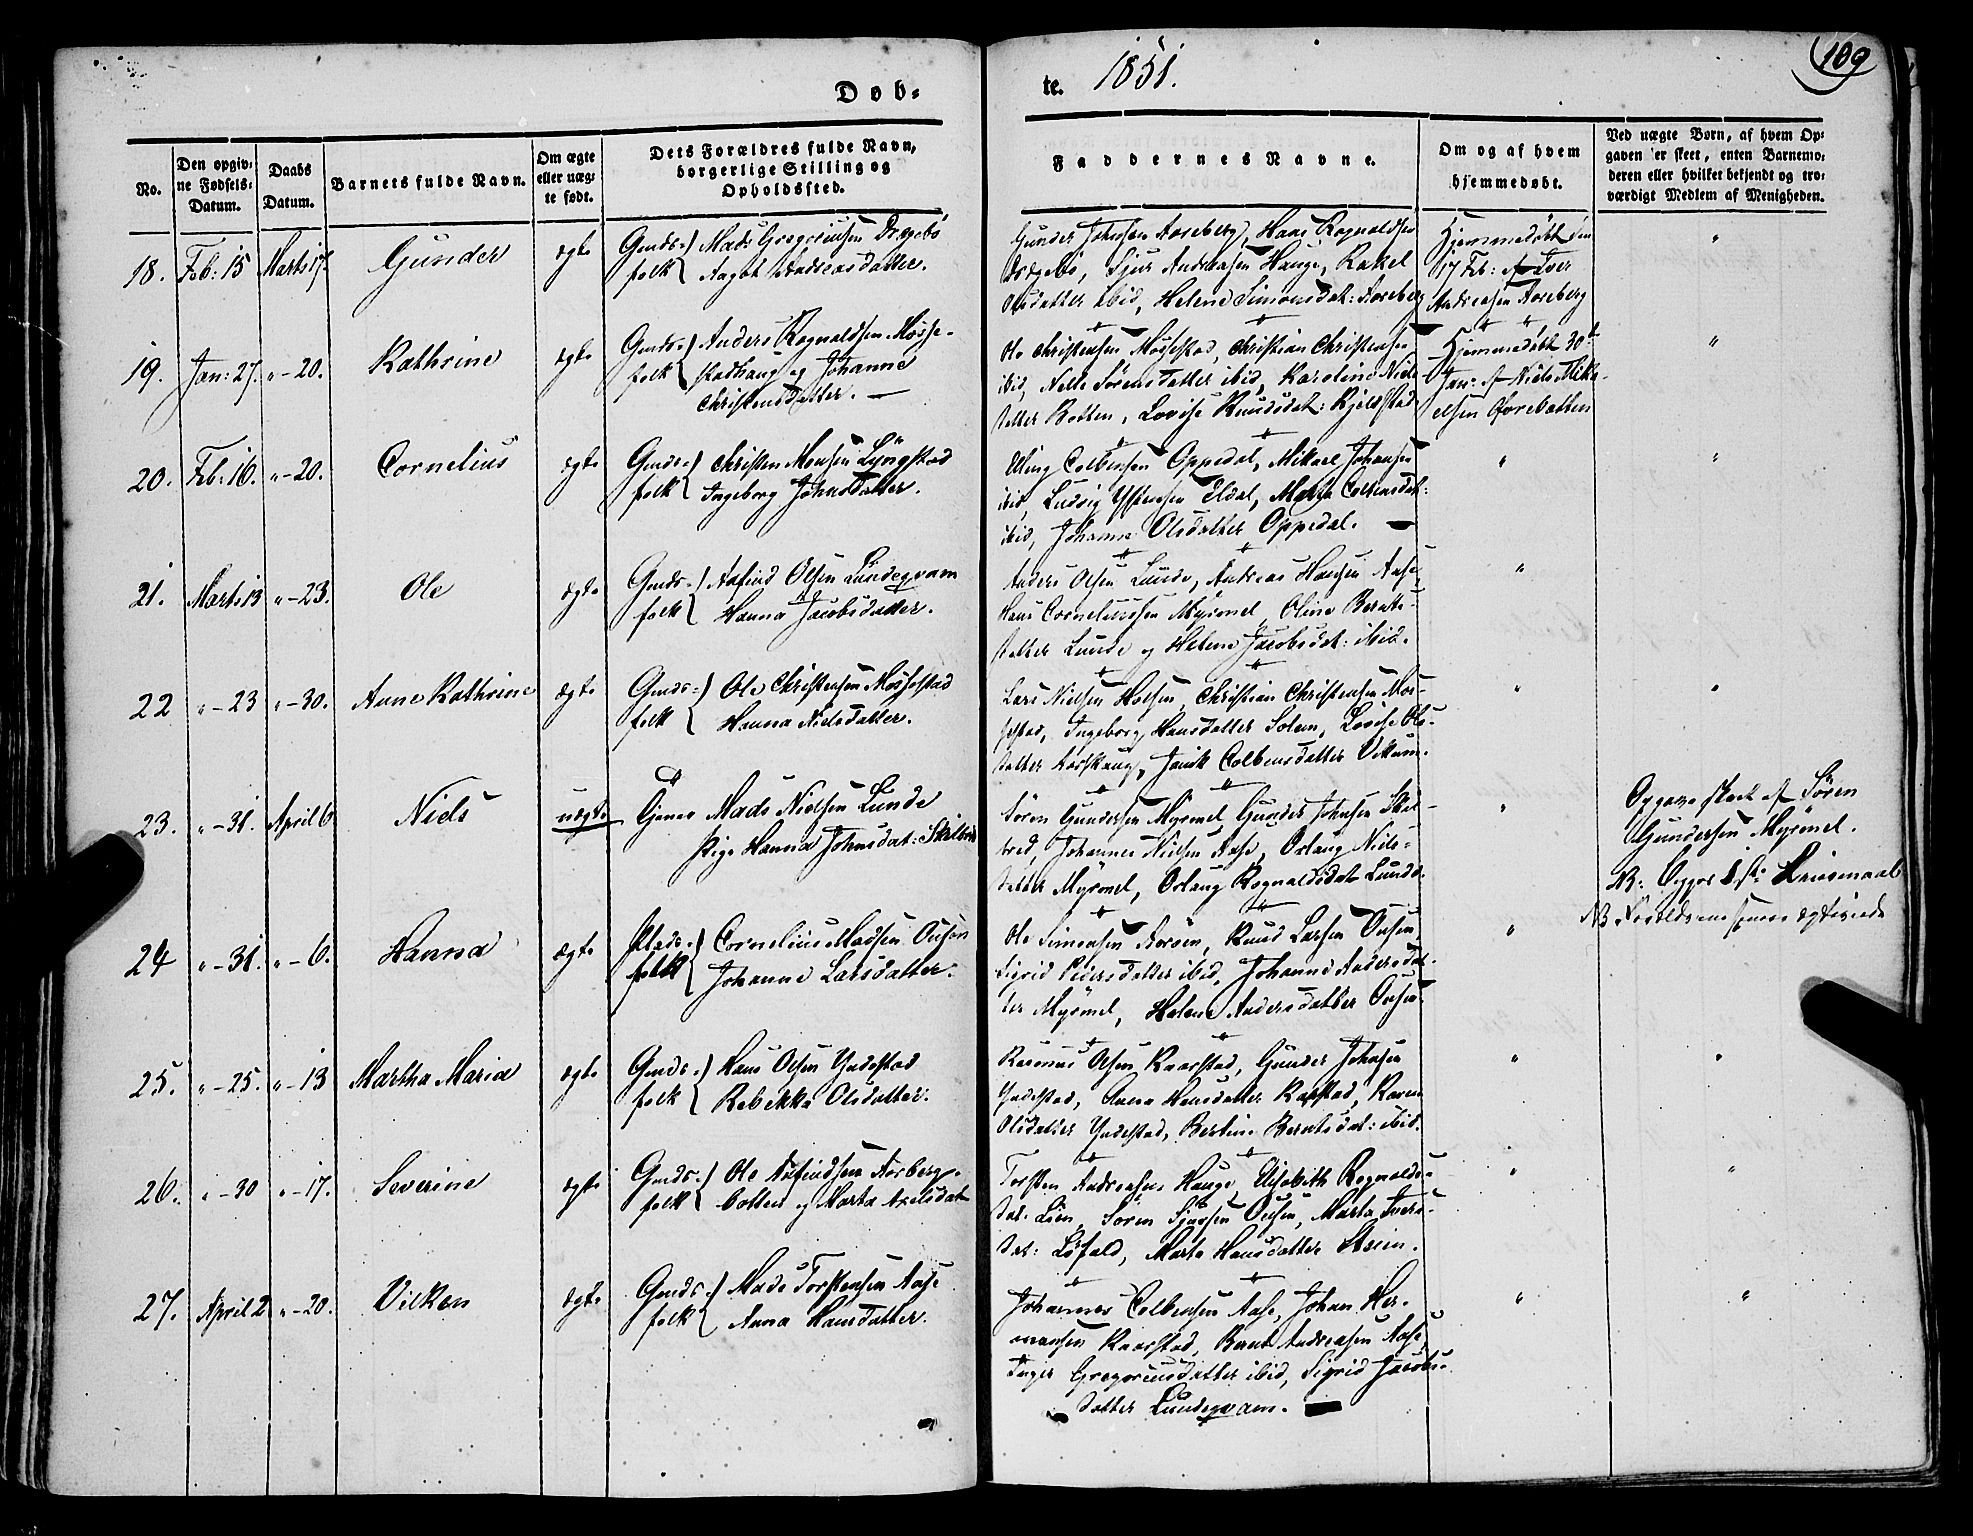 109
Døb-
te. 1851.
No.
Den opgiv-
ne Fødsels-
Datum.
Daabs
Datum.
Barnets fulde Navn.
Om ægte
eller uæg-
te født.
Dets Forældres fulde Navn,
borgerlige Stilling og
Opholdssted.
Faddernes Navne.
Om og af hvem
hjemmedøbt.
Ved uægte Børn, af hvem Op-
gaven er skeet, enten Barnemo-
deren eller hvilket bekjendt og tro-
værdigt Medlem af Menigheden.
18. Feb: 15 Marts 17. Gunder ægte
Gmds- folk Mads Gregoriussen Dregebø
Aagot Andreasdatter.
Gunder Johnsen Aareberg, Hans Rognaldsen
Dregebø, Sjur Andreasen Hauge, Rakel
Olsdatter ibid, Helene Simonsdat: Aareberg
Hjemmedøbt den
17 Feb: af Iver
Andreasen Aareberg
"
19. Jan: 27. "-20. Kathrine ægte
Gmds- folk Anders Rognaldsen Møsse-
stadhaug og Johanne
Christensdatter. —
Ole Christensen Møssestad, Christian Christensen
ibid, Nelle Sørensdatter ibid, Karoline Niels-
datter Botten, Lovise Knudsdat: Kjelsstad
Hjemmedøbt 30te
Jan: af Niels Mika-
elsen Øvrebotten
"
20. Feb: 16. "-20. Cornelius ægte
Gmds- folk Christen Monsen Lyngstad
Ingeborg Johnsdatter.
Elling Colbensen Oppedal, Mikael Johansen
ibid, Ludvig Eldal, Marta Colbensdat:
ibid, Johanne Olsdatter Oppedal. —
"
"
21. Marts 13 "-23. Ole ægte
Gmds- folk Olsen Lundeqvam
og
Hanna Jacobsdatter.
Anders Olsen Lunde, Andreas Hansen Aase,
Hans Corneliussen Myrmel, Oline Bernts-
datter Lunde og Helene Jacobsdat: ibid.
"
22 "-23 "-30. Anne Kathrine ægte
Gmds- folk Ole Christensen Møssestad
Hanna Nielsdatter.
Lars Nielsen Holsen, Christian Christensen Møs-
sestad, Ingeborg Hansdatter Solem, Lovise Ols-
datter, Colbensdatter
"
"
23. "-31. April 6 Niels uægte
Tjener Mads Nielsen Lunde
Pige Hanna Johnsdat:
Søren Gundersen Myrmel, Gunder Johnsen
Johannes Nielsen Aase, Niels-
datter Myrmel, Rognaldsdat Lunde.
"
Opgave skeet af Søren
Gundersen Myrmel.
NB: Leiermaal
NB Forældrene senere ægteviede
24 "-31. "-6. Hanna ægte
Plads- folk Cornelius Madsen
Johanne Larsdatter.
Ole Simonsen, Knud Larsen
Sigrid Pedersdatter ibid, Johanne Andersdat-
ter Myrmel, Helene Andersdatter
"
25. "-25. "-13 Martha Maria ægte
Gmds- folk Hans Olsen Yndestad
Rebekka Olsdatter.
Rasmus Olsen Kaarstad, Gunder Johnsen
Yndestad, Anna Hansdatter, Karen
Olsdatter Yndestad, Bertine Berntsdat: ibid.
"
"
26. "-30 "-17. Severine ægte
Gmds- folk Ole Aarberg-
botten og Marta Axelsdat
Torsten Andreasen Hauge, Elisabeth Rognalds-
dat: Lien, Søren Sjursen, Marta Ivers-
dat: Løfald, Marta Hansdatter
"
"
27. April 2 "-20. Vilken ægte
Gmds- folk Mads Torstensen Aase
Anna Hansdatter.
Johannes Colbensen Aase, Johan Her-
mansen Kaarstad, Bernt Andreasen Aase,
Inger Gregoriusdatter ibid, Sigrid Jacobs-
datter Lundeqvam. —
"
"